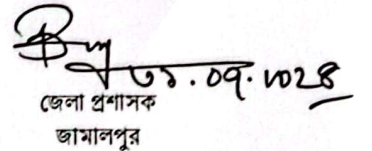 ৩১.০৭.২০২৪
জেলা প্রশাসক
জামালপুর